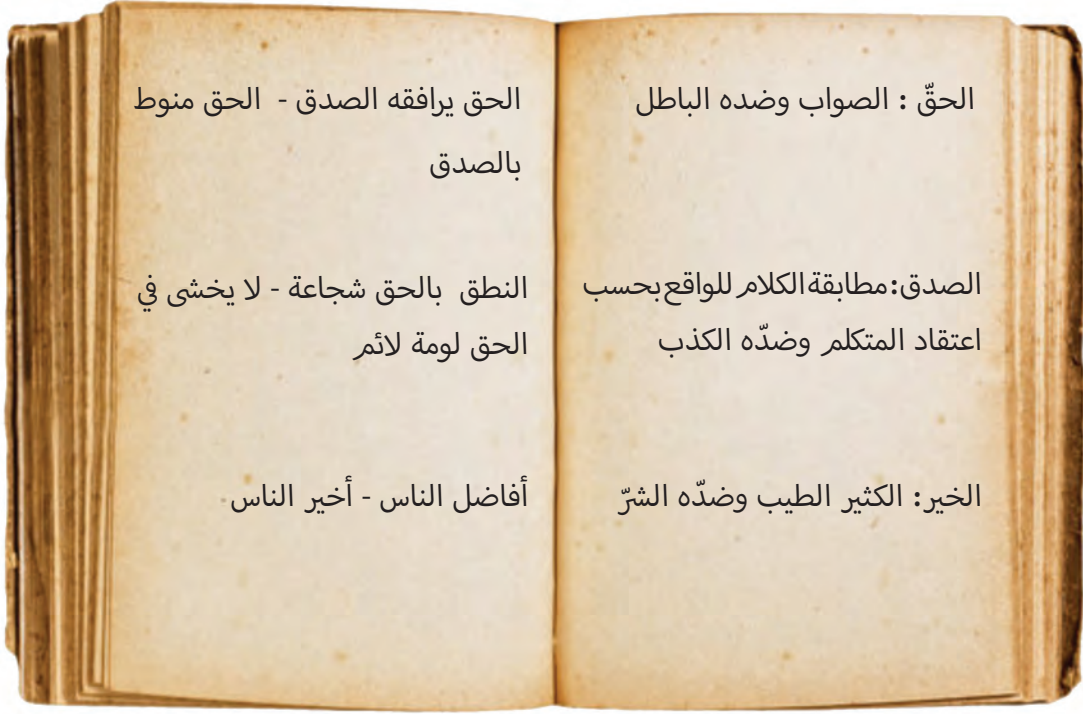 الحقّ : الصواب وضده الباطل
الصدق:مطابقة الكلام للواقع بحسب
اعتقاد المتكلم وضدّه الكذب
الخير: الكثير الطيب وضدّه الشرّ
الحق يرافقه الصدق - الحق منوط
بالصدق
النطق بالحق شجاعة - لا يخشى في
الحق لومة لائم
أفاضل الناس - أخير الناس